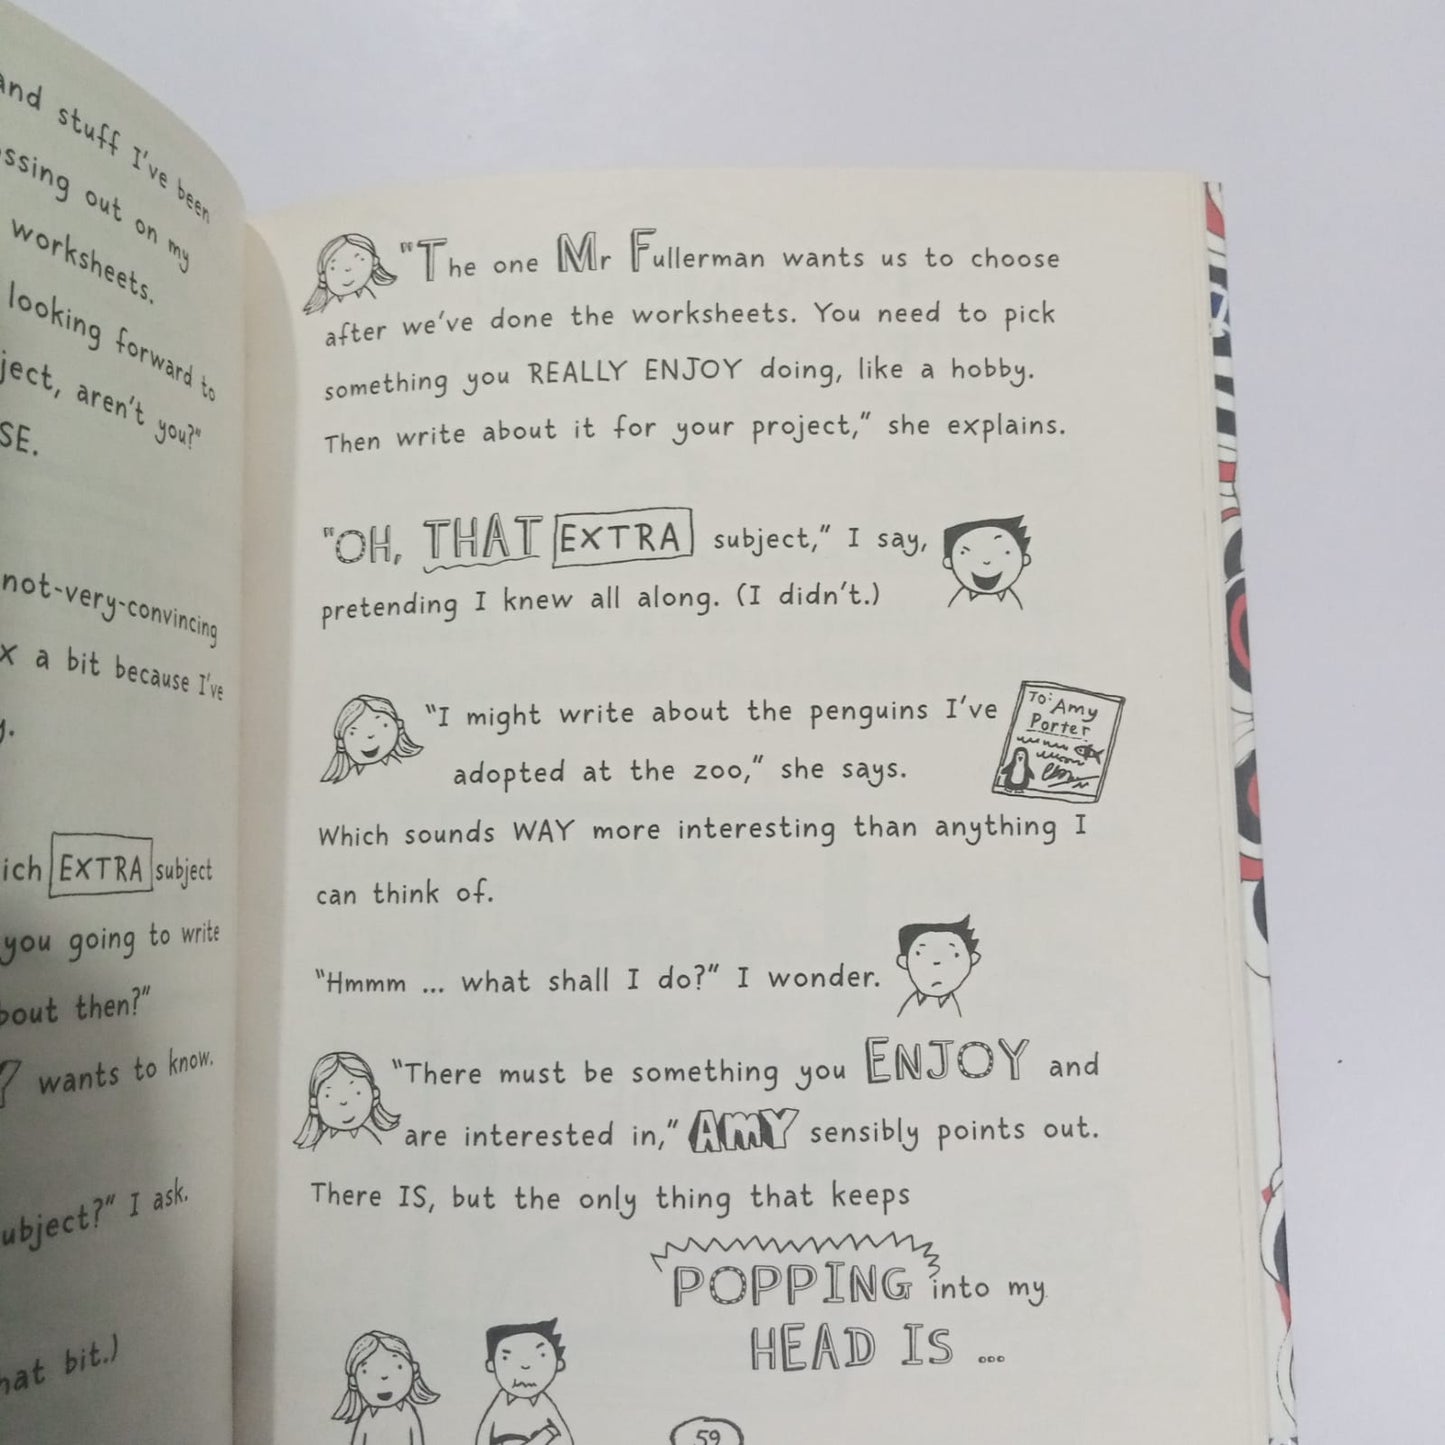 and stuff I've been
out on my
worksheets.
looking forward to
aren't you?"
not-very-convincing
a bit because I've
EXTRA subject
you going to write
then?"
wants to know.
I ask.
bit.)
"The one Mr Fullerman wants us to choose
after we've done the worksheets. You need to pick
something you REALLY ENJOY doing, like a hobby.
Then write about it for your project," she explains.
"OH, THAT EXTRA subject," I say,
pretending I knew all along. (I didn't.)
"I might write about the penguins I've
adopted at the zoo," she says.
To: Amy
Porter
Which sounds WAY more interesting than anything I
can think of.
"Hmmm ... what shall I do?" I wonder.
"There must be something you ENJOY and
are interested in," AMY sensibly points out.
There IS, but the only thing that keeps
POPPING into my
HEAD IS ...
59